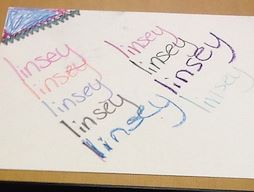 linsey
linsey
linsey
linsey
linsey
linsey
linsey
linsey
linsey